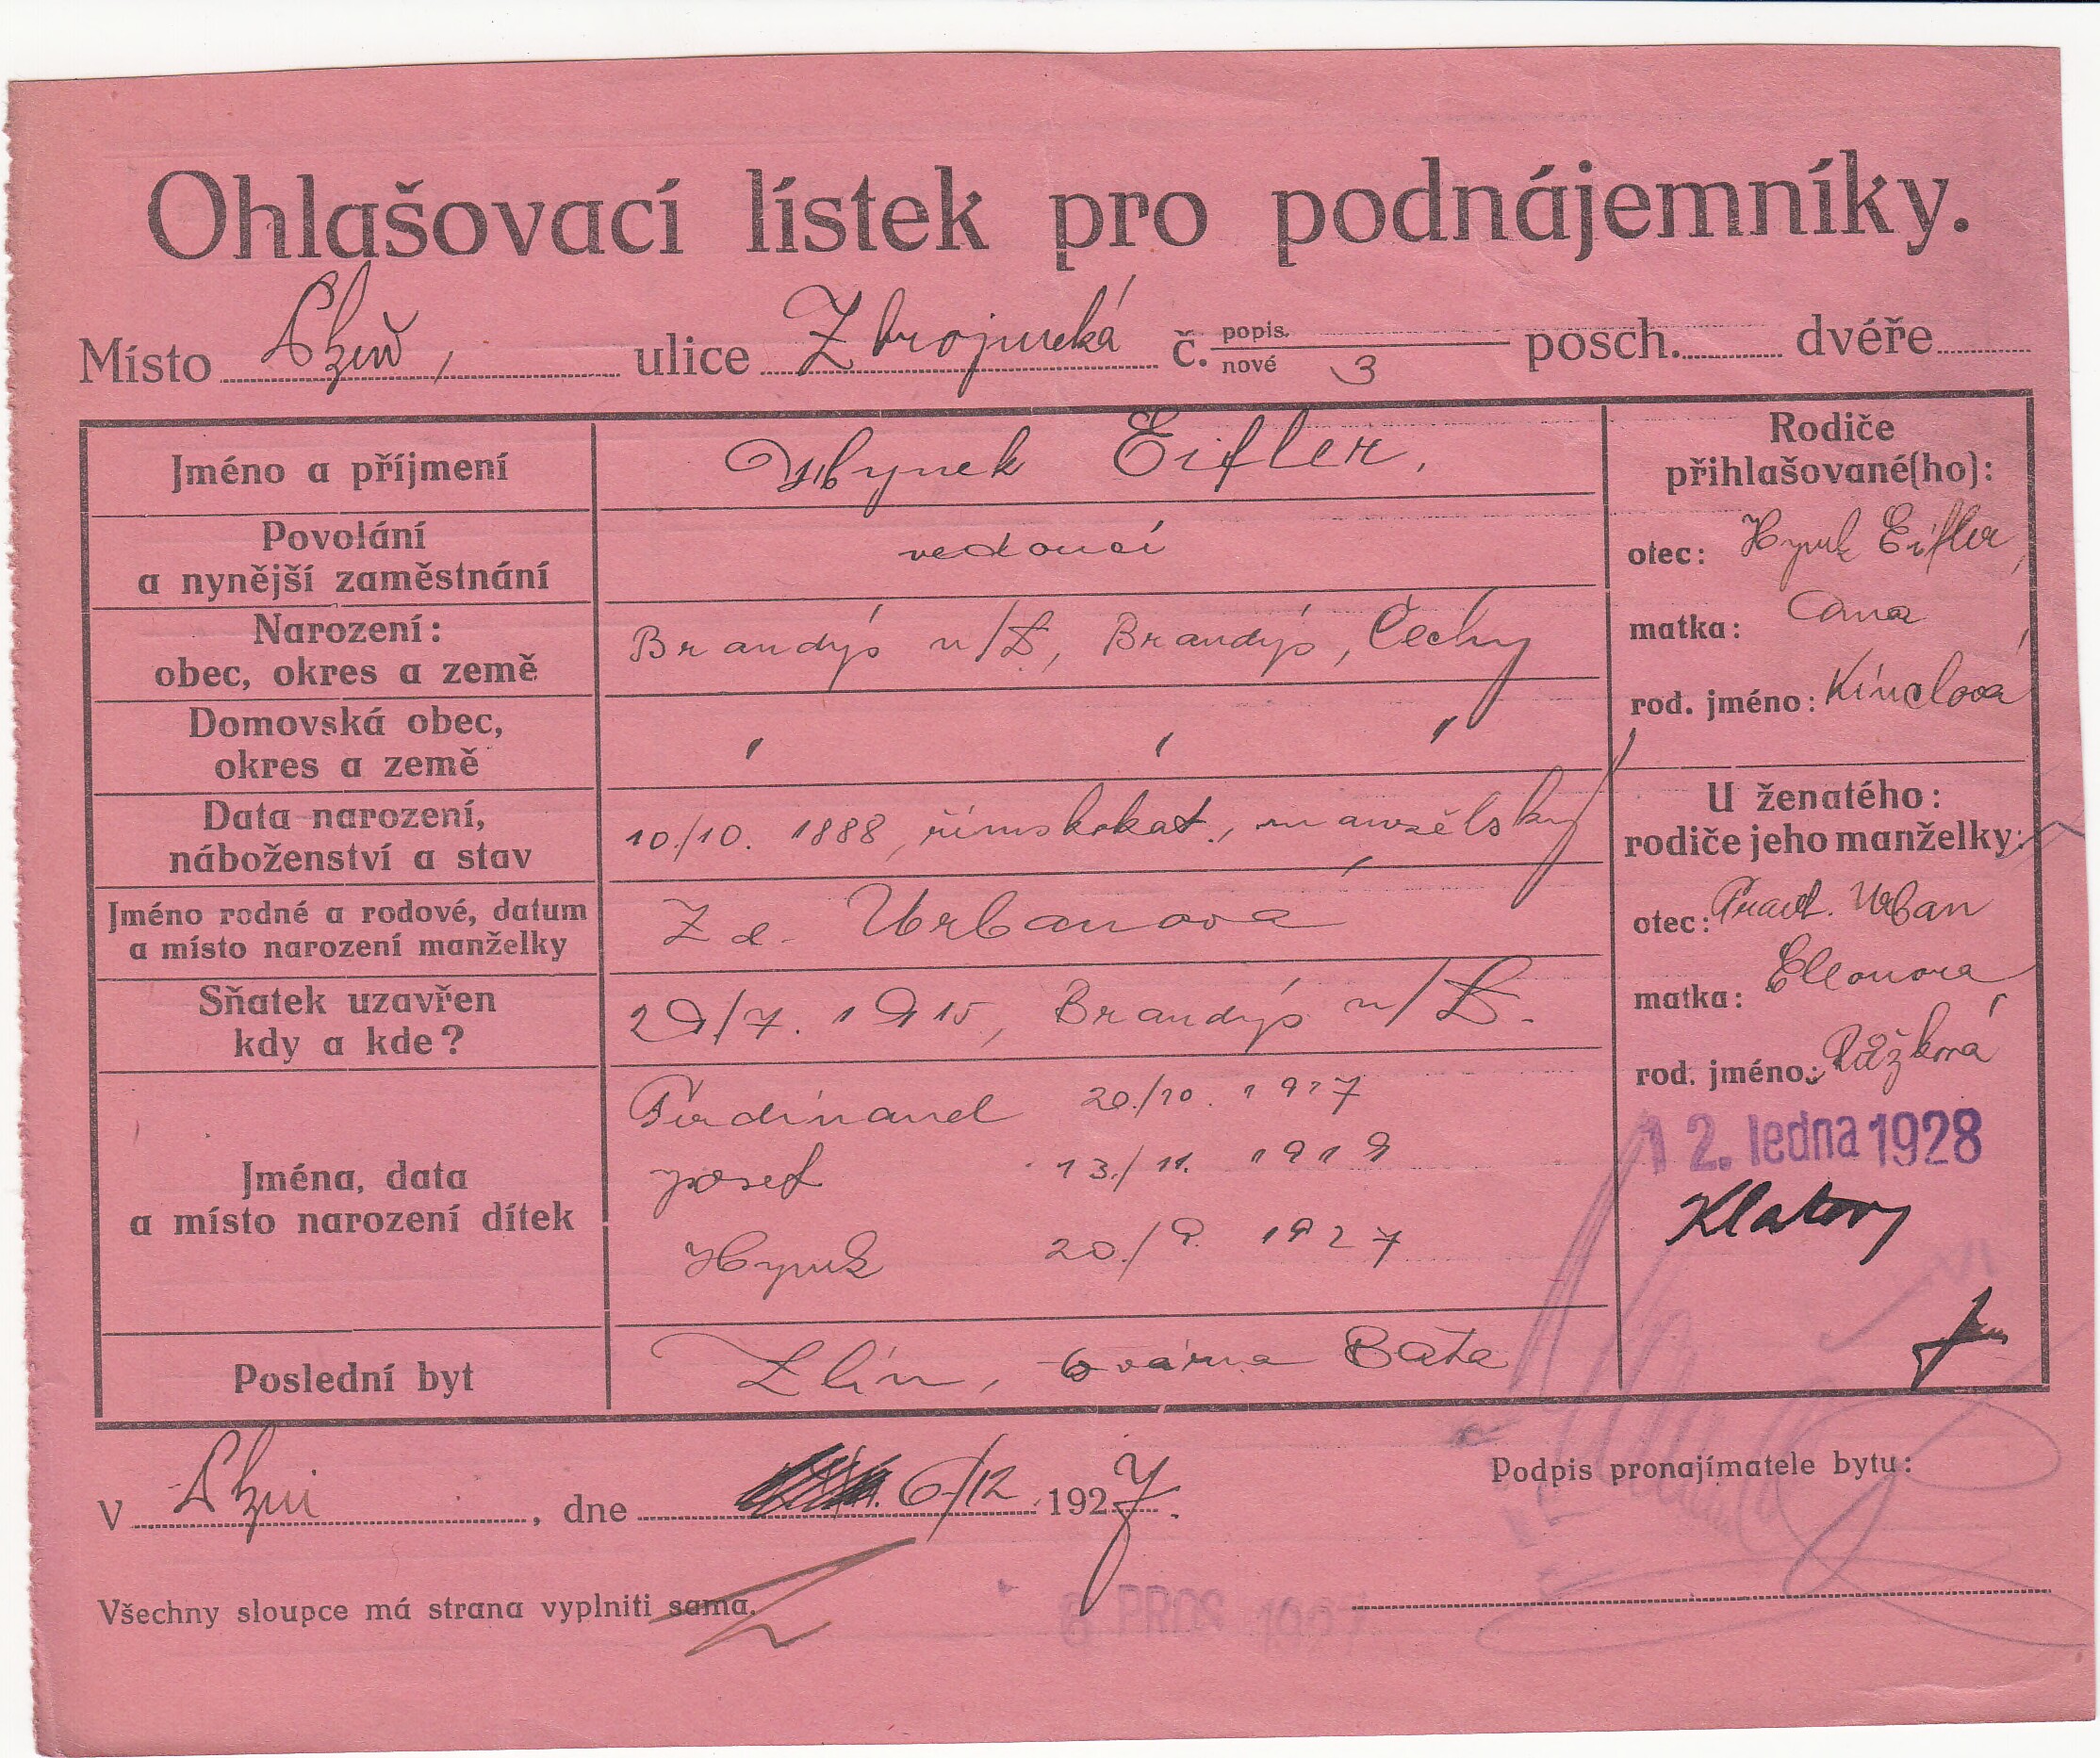 Ohlašovací lístek pro podnájemníky.
Místo ulice Zbrojnická č. popis. nové 3 posch. dvéře
Jméno a příjmení Hynek Eifler.
Povolání
a nynější zaměstnání vedoucí
Narození:
obec, okres a země Brandýs n/L, Brandýs, Čechy
Domovská obec,
okres a země " " "
Data narození,
náboženství a stav 10./10. 1888, římskokat., manželský
Jméno rodné a rodové, datum
a místo narození manželky Zd. Urbanova
Sňatek uzavřen
kdy a kde? 29/7. 1915, Brandýs n/L.
Jména, data
a místo narození dítek
Ferdinand 20./10. 1917
Josef 13./11. 1919
Hynek 20./9. 1927
Poslední byt Zlín, továrna Baťa
Rodiče
přihlašované(ho):
otec: Hynek Eifler,
matka: Ana
rod. jméno: Kínclová
U ženatého:
rodiče jeho manželky:
otec: Frant. Urban
matka: Eleonora
rod. jméno: Růžková
12. ledna 1928
Klatovy
V , dne 6/12 1927.
Podpis pronajímatele bytu:
Všechny sloupce má strana vyplniti sama.
6 PROS 1927